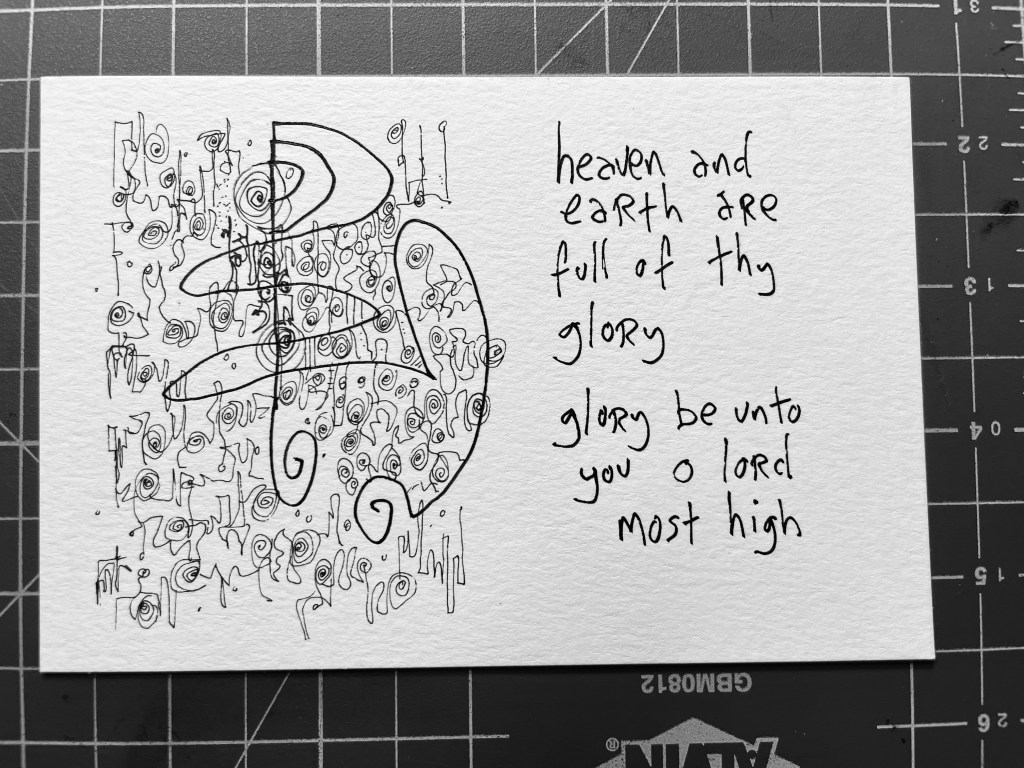 heaven and
earth are
full of thy
glory
glory be unto
you o lord
most high
31
22
13
04
15
26
GBM0812
ALVIN®